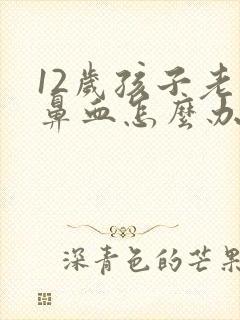 12歲孩子老
鼻血怎麼办
深青色的芒果